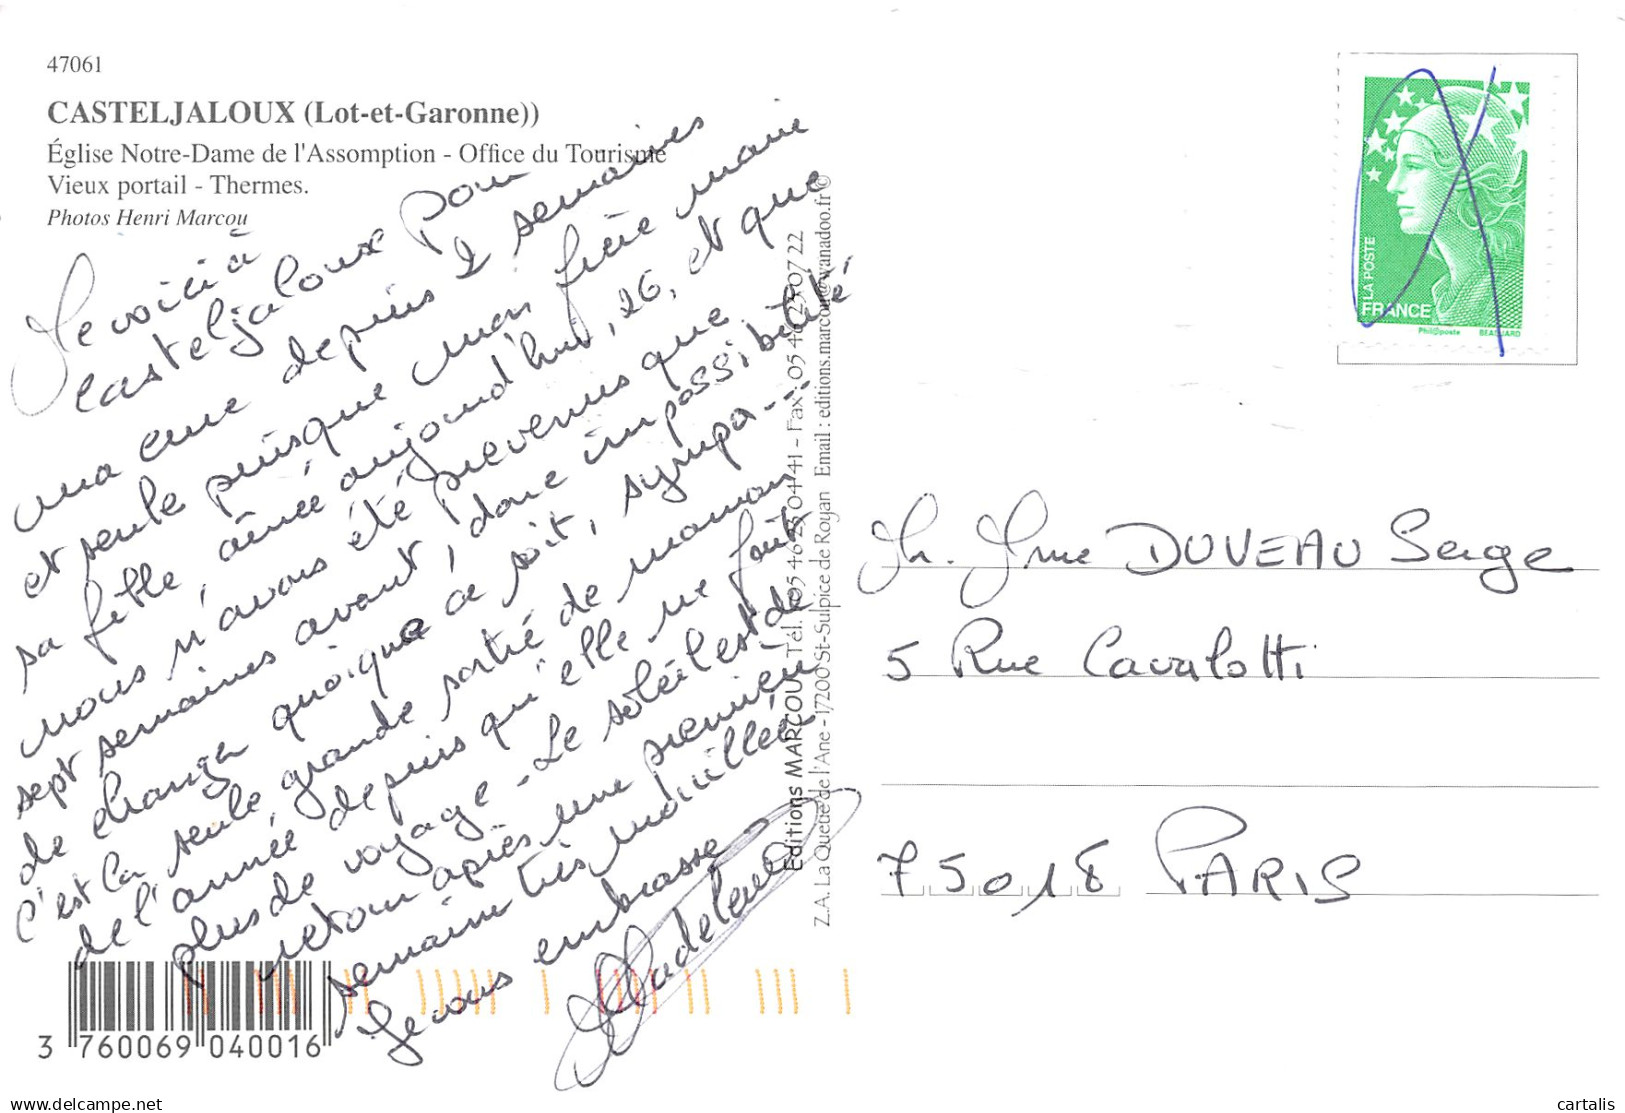 47061
CASTELJALOUX (Lot-et-Garonne))
Église Notre-Dame de l'Assomption - Office du Tourisme
Vieux portail - Thermes.
Photos Henri Marcou
Me voici à
Casteljaloux pour
ma cure depuis 2 semaines
et seule puisque mon frère marie
sa fille, aînée aujourd'hui, 26, et que
nous n'avons été prévenus que
sept semaines avant, donc impossibilité
de changer quoique ce soit, sympa...
c'est la seule grande sortie de maman
de l'année depuis qu'elle ne fait
plus de voyage - Le soleil est de
retour après une première
semaine très mouillée
Je vous embrasse
Madeleine
Editions MARCOU - Tél. 05 46 23 04 41 - Fax : 05 46 23 07 22
Z.A. La Queue de l'Ane - 17200 St-Sulpice de Royan Email : editions.marcou@wanadoo.fr ©
LA POSTE
FRANCE
Phil@poste
BEAUJARD
M. Mme DUVEAU Serge
5 Rue Cavalotti
75018 PARIS
3 760069 040016
www.delcampe.net
cartalis